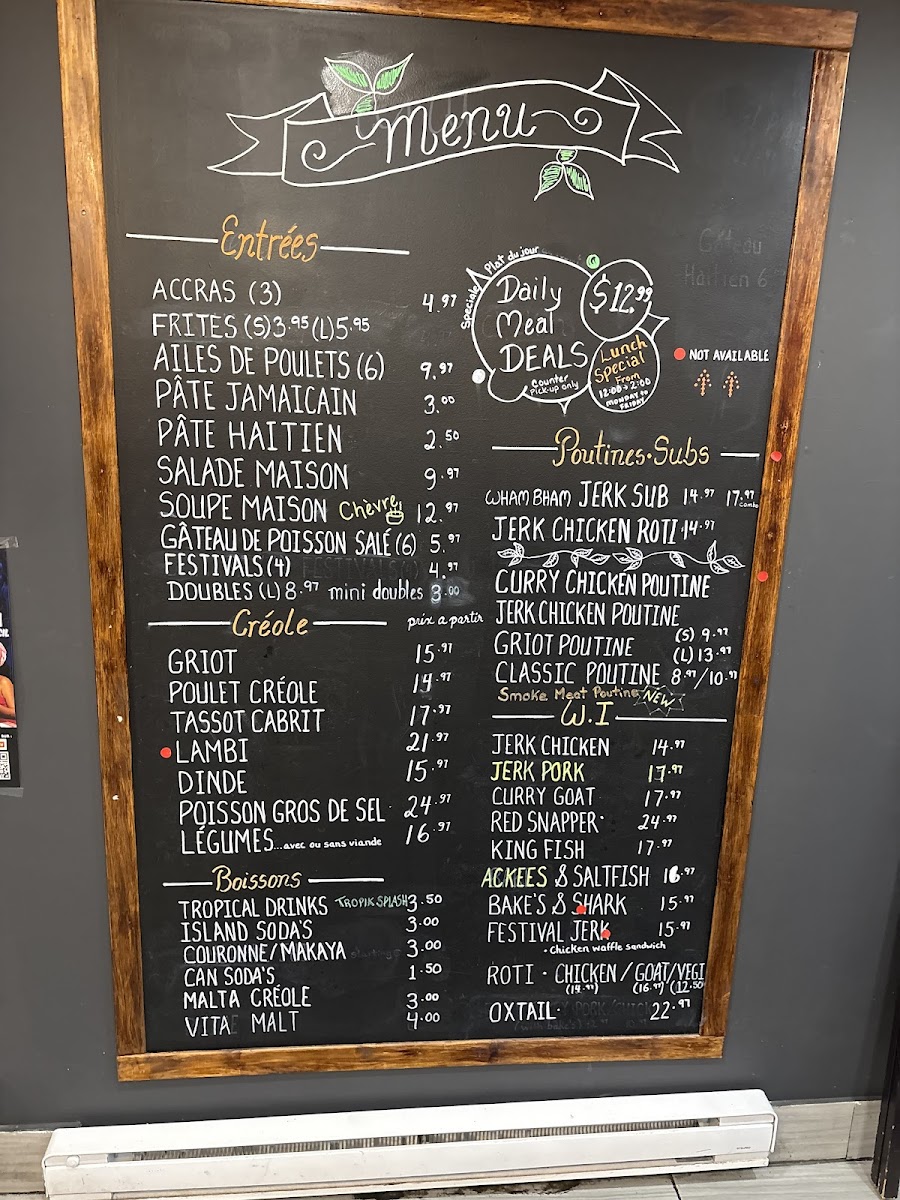 Menu
Entrées
ACCRAS (3) 4.97
FRITES (S) 3.95 (L) 5.95
AILES DE POULETS (6) 9.97
PÂTE JAMAICAIN 3.00
PÂTE HAITIEN 2.50
SALADE MAISON 9.97
SOUPE MAISON Chèvre 12.97
GÂTEAU DE POISSON SALÉ (6) 5.97
FESTIVALS (4) 4.97
DOUBLES (L) 8.97 mini doubles 3.00
Créole prix a partir
GRIOT 15.97
POULET CRÉOLE 14.97
TASSOT CABRIT 17.97
LAMBI 21.97
DINDE 15.97
POISSON GROS DE SEL 24.97
LÉGUMES...avec ou sans viande 16.97
Boissons
TROPICAL DRINKS TROPIK SPLASH 3.50
ISLAND SODA'S 3.00
COURONNE/MAKAYA 3.00
CAN SODA'S 1.50
MALTA CRÉOLE 3.00
VITA MALT 4.00
Gâteau
Haitien 6
Speciale Plat du jour
Daily
Meal
DEALS
Counter
Pick-up only
$12.99
Lunch
Special
From
12:00 > 2:00
MONDAY to
FRIDAY
NOT AVAILABLE
Poutines · Subs
WHAM BHAM JERK SUB 14.97 17.97
combo
JERK CHICKEN ROTI · 14.97
CURRY CHICKEN POUTINE
JERK CHICKEN POUTINE
GRIOT POUTINE (S) 9.97
(L) 13.97
CLASSIC POUTINE 8.97/10.97
Smoke Meat Poutine NEW
W.I
JERK CHICKEN 14.97
JERK PORK 17.97
CURRY GOAT 17.97
RED SNAPPER 24.97
KING FISH 17.97
ACKEES & SALTFISH 16.97
BAKE'S & SHARK 15.97
FESTIVAL JERK 15.97
· Chicken waffle sandwich
ROTI · CHICKEN / GOAT/VEGI
(14.97) (16.97) (12.50
OXTAIL · 22.97